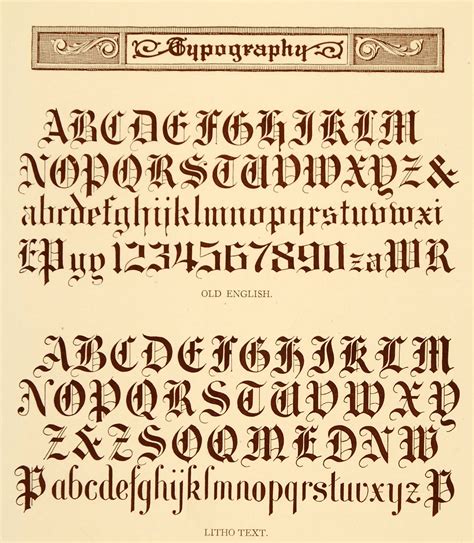 Typography
ABCDEFGHIKLM
NOPQRSTUVWXYZ&
abcdefghijklmnopqrstuvwxi
EPyy1234567890zaWR
OLD ENGLISH.
ABCDEFGHIKLM
NOPQRSTUVWXY
Z&ZSOQMEDNW
P abcdefghijklmnopqrstuvxyz P
LITHO TEXT.